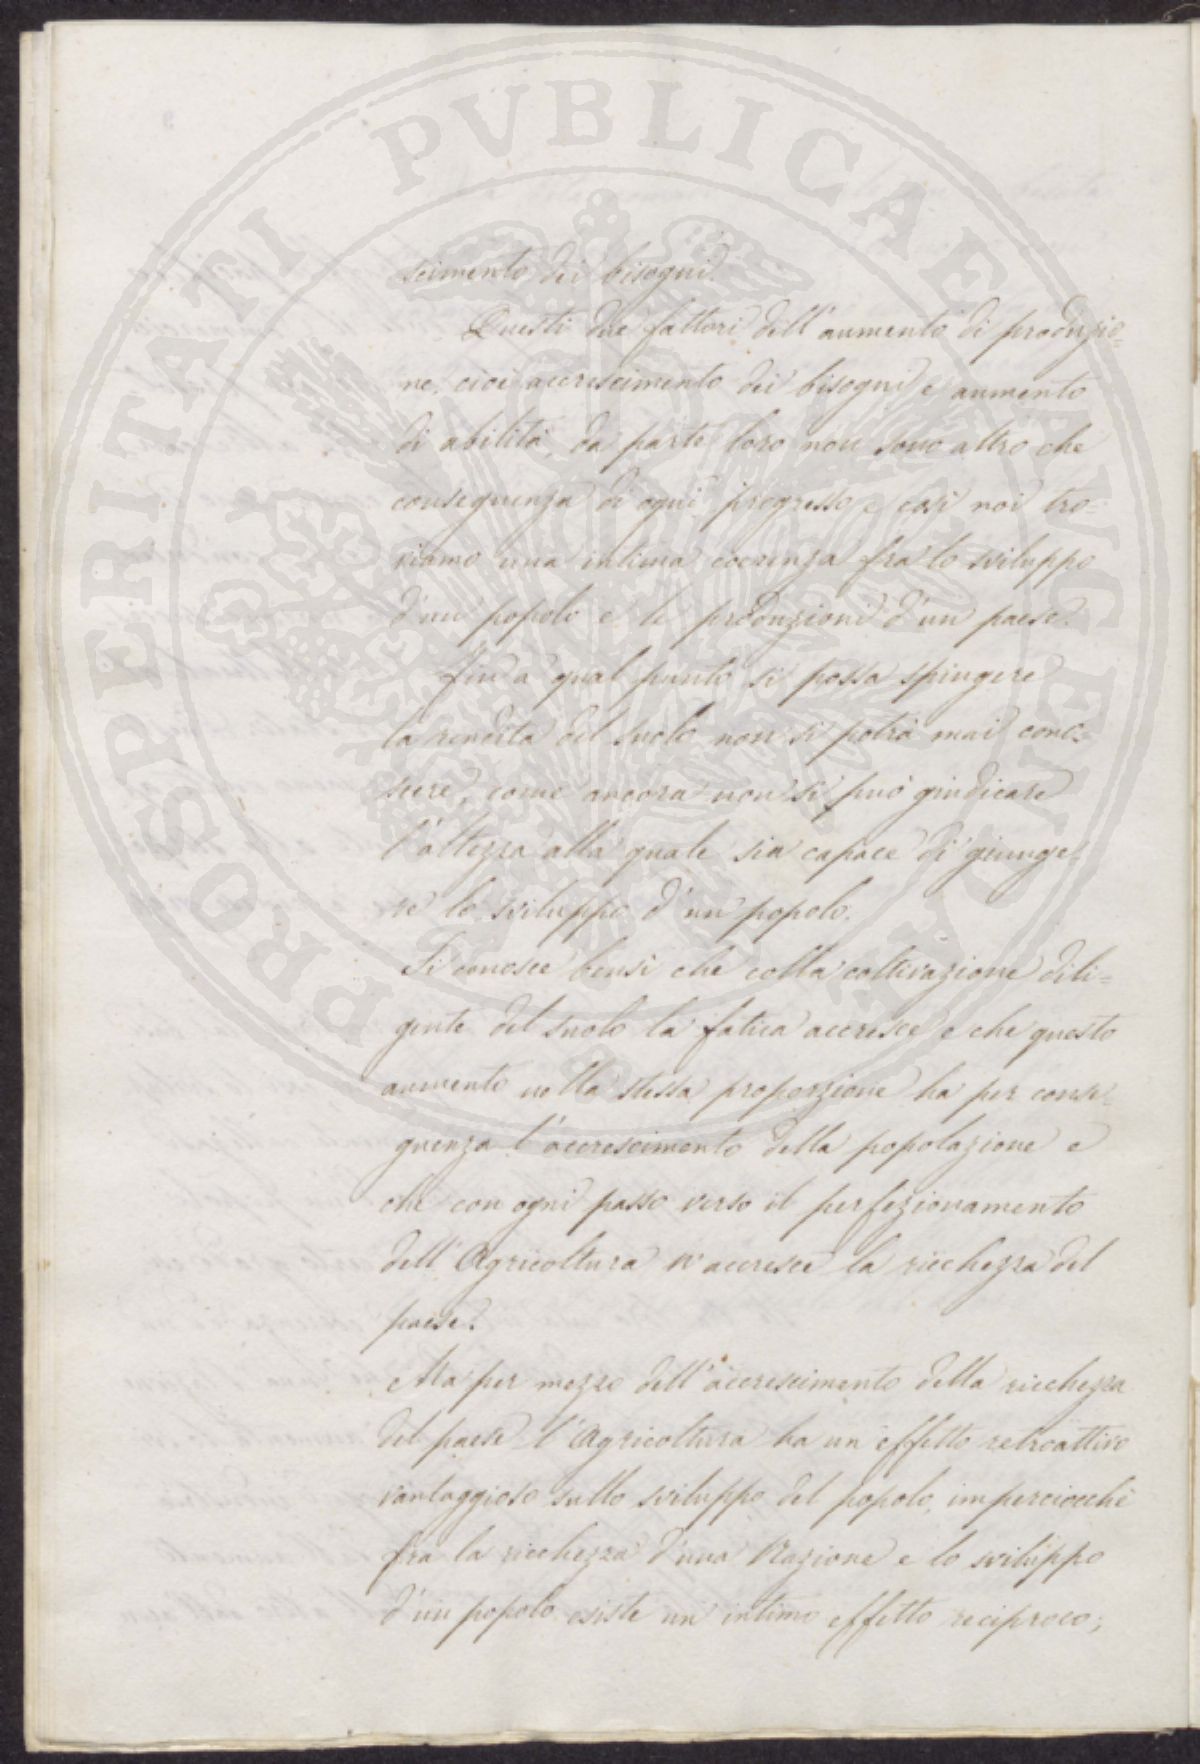 PROSPERITATI PVBLICAE AVGENDAE
scimento dei bisogni.
Questi due fattori dell'aumento di produzio=
ne, cioè accrescimento dei bisogni e aumento
di abilità, da parte loro non sono altro che
conseguenza di ogni progresso e così noi tro=
viamo una intima coerenza fra lo sviluppo
d'un popolo e le produzioni d'un paese.
Fin a qual punto si possa spingere
la rendita del suolo non si potrà mai cono=
scere, come ancora non si può giudicare
l'altezza alla quale sia capace di giunge=
re lo sviluppo d'un popolo.
Si conosce bensì che colla coltivazione dili=
gente del suolo la fatica accresce e che questo
aumento nella stessa proporzione ha per conse=
guenza l'accrescimento della popolazione e
che con ogni passo verso il perfezionamento
dell'Agricoltura s'accresce la ricchezza del
paese.
Ma per mezzo dell'accrescimento della ricchezza
del paese l'Agricoltura ha un effetto retroattivo
vantaggioso sullo sviluppo del popolo, imperciocchè
fra la ricchezza d'una Nazione e lo sviluppo
d'un popolo esiste un intimo effetto reciproco;